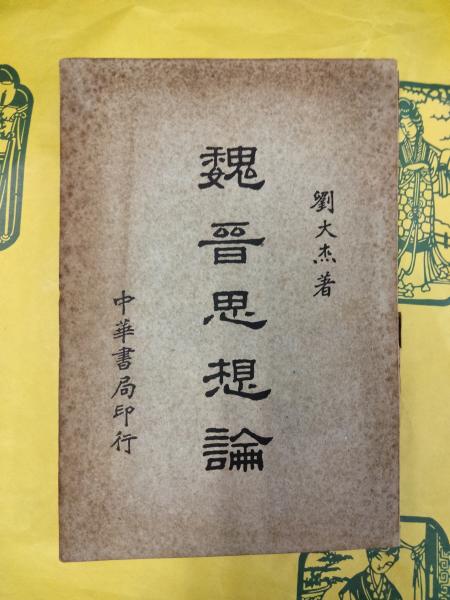 劉大杰著
魏晉思想論
中華書局印行